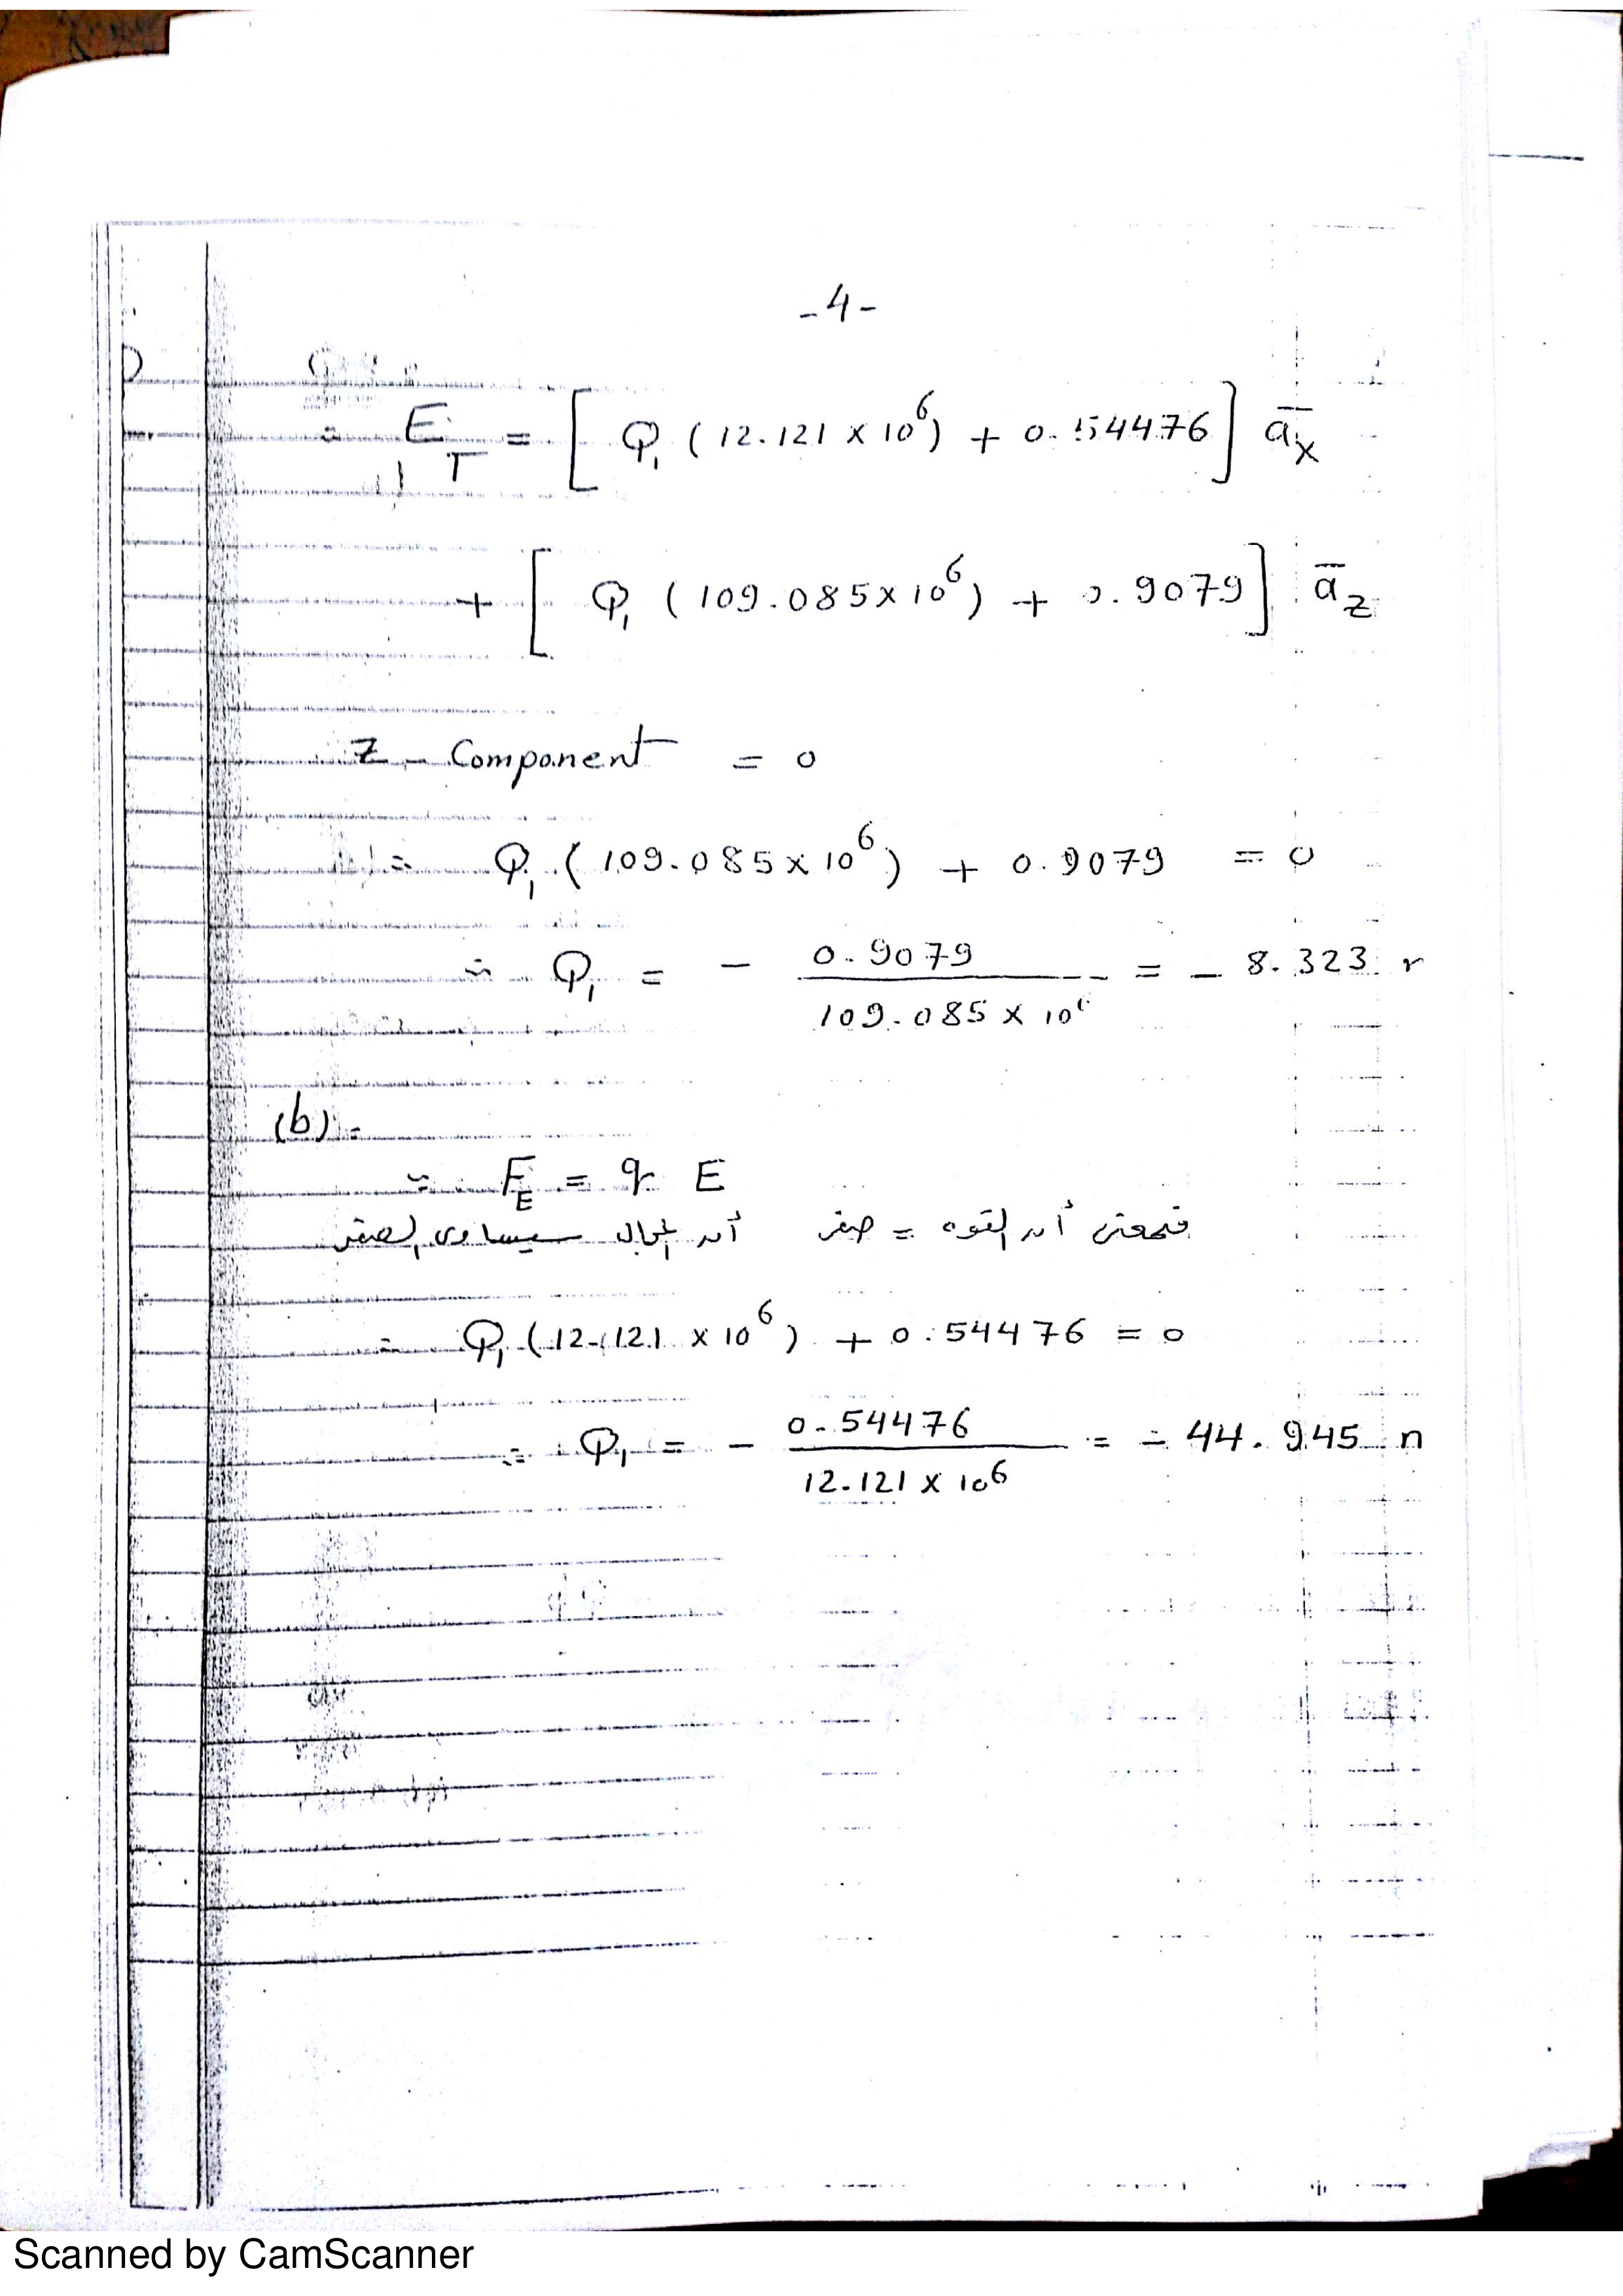 -4-
∴ E_T = [ Q₁ (12.121 × 10⁶) + 0.54476 ] a̅x
+ [ Q₁ (109.085 × 10⁶) + 0.9079 ] a̅z
Z - Component = 0
∴ Q₁ (109.085 × 10⁶) + 0.9079 = 0
∴ Q₁ = - 0.9079 / 109.085 × 10⁶ = - 8.323 n
(b) :-
∵ F_E = q E
فمعنى أن القوه = صفر أن المجال سيساوى الصفر
∴ Q₁ (12.121 × 10⁶) + 0.54476 = 0
∴ Q₁ = - 0.54476 / 12.121 × 10⁶ = - 44.945 n
Scanned by CamScanner